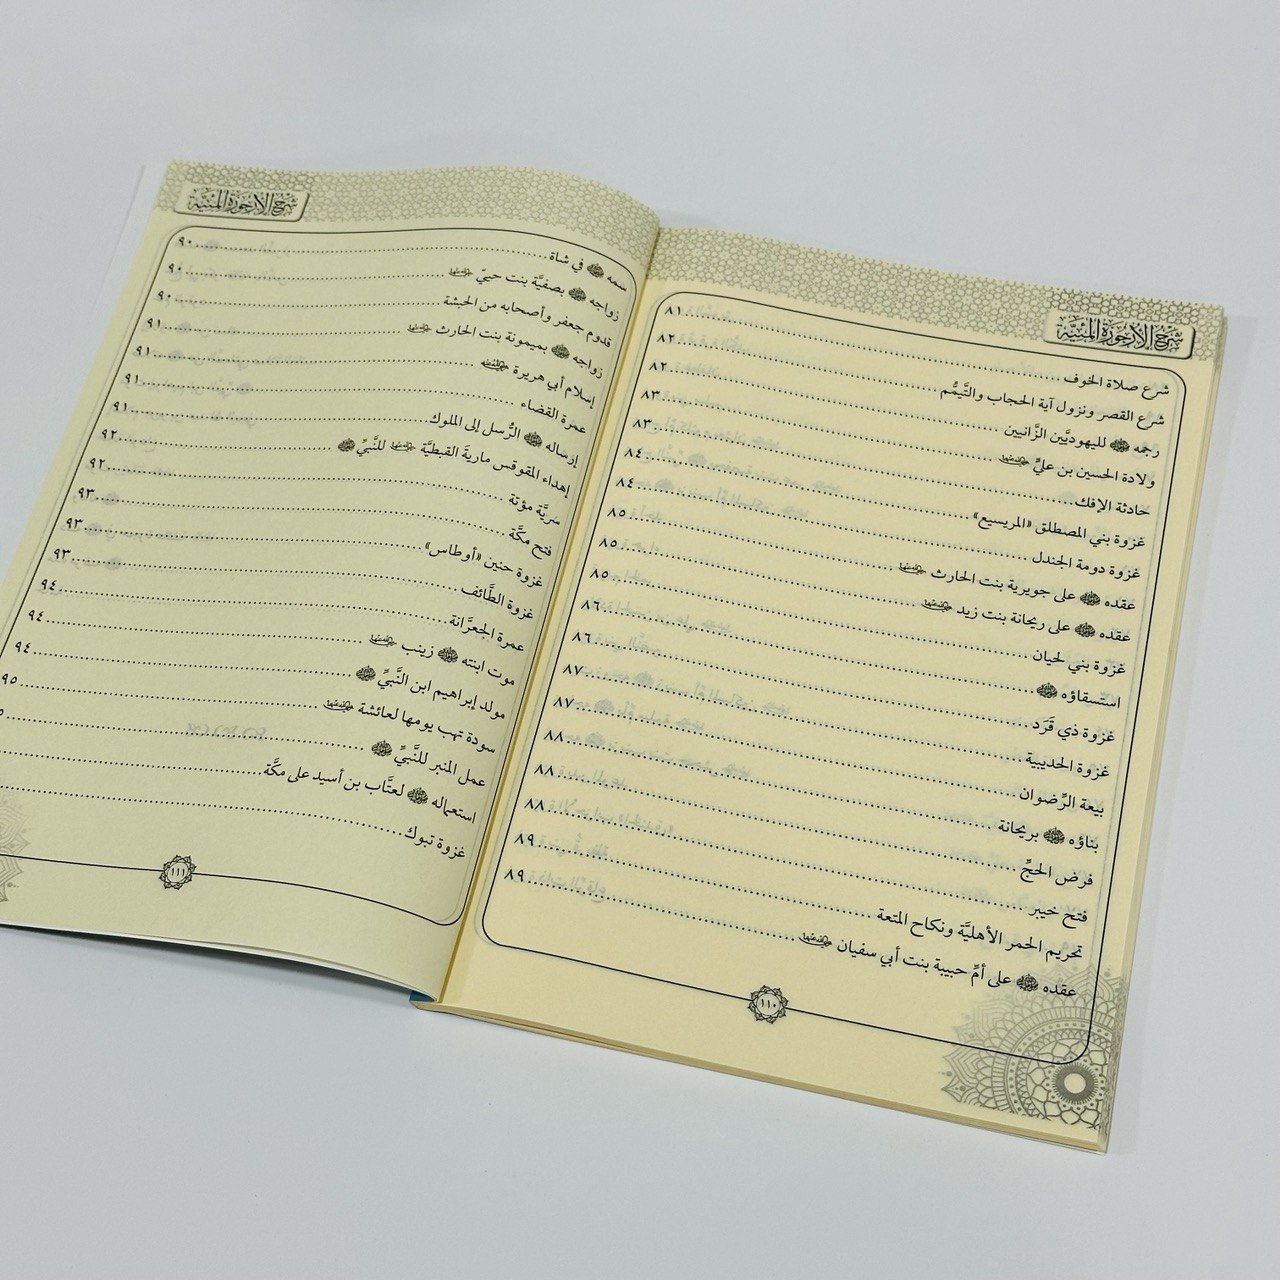 شرح الأرجوزة المئية
شرع صلاة الخوف ........ ٨١
شرع القصر ونزول آية الحجاب والتَّيمُّم ........ ٨٢
رجمه ﷺ لليهوديَّين الزَّانيين ........ ٨٢
ولادة الحسين بن عليٍّ رضي الله عنهما ........ ٨٣
حادثة الإفك ........ ٨٣
غزوة بني المصطلق «المريسيع» ........ ٨٤
غزوة دومة الجندل ........ ٨٤
عقده ﷺ على جويرية بنت الحارث رضي الله عنها ........ ٨٥
عقده ﷺ على ريحانة بنت زيد رضي الله عنها ........ ٨٥
غزوة بني لحيان ........ ٨٥
استسقاؤه ﷺ ........ ٨٦
غزوة ذي قَرَد ........ ٨٦
غزوة الحديبية ........ ٨٧
بيعة الرِّضوان ........ ٨٧
بناؤه ﷺ بريحانة ........ ٨٨
فرض الحجِّ ........ ٨٨
فتح خيبر ........ ٨٨
تحريم الحمر الأهليَّة ونكاح المتعة ........ ٨٩
عقده ﷺ على أمِّ حبيبة بنت أبي سفيان رضي الله عنها ........ ٨٩
١١٠
شرح الأرجوزة المئية
سمه ﷺ في شاة ........ ٩٠
زواجه ﷺ بصفيَّة بنت حييّ رضي الله عنها ........ ٩٠
قدوم جعفر وأصحابه من الحبشة ........ ٩٠
زواجه ﷺ بميمونة بنت الحارث رضي الله عنها ........ ٩١
إسلام أبي هريرة رضي الله عنه ........ ٩١
عمرة القضاء ........ ٩١
إرساله ﷺ الرُّسل إلى الملوك ........ ٩١
إهداء المقوقس ماريةَ القبطيَّة رضي الله عنها للنَّبيِّ ﷺ ........ ٩٢
سريَّة مؤتة ........ ٩٢
فتح مكَّة ........ ٩٣
غزوة حنين «أوطاس» ........ ٩٣
غزوة الطَّائف ........ ٩٣
عمرة الجعرَّانة ........ ٩٤
موت ابنته ﷺ زينب رضي الله عنها ........ ٩٤
مولد إبراهيم ابن النَّبيِّ ﷺ ........ ٩٤
سودة تهب يومها لعائشة رضي الله عنها ........ ٩٥
عمل المنبر للنَّبيِّ ﷺ ........ ٥
استعماله ﷺ لعتَّاب بن أسيد على مكَّة ........
غزوة تبوك ........
١١١